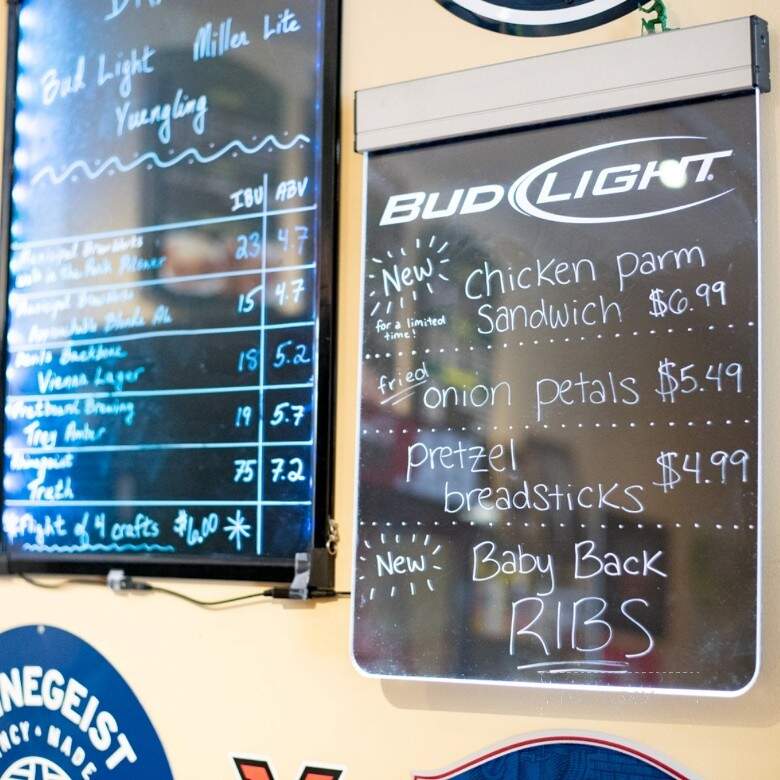 Bud Light Miller Lite
Yuengling
IBU ABV
in The Park Pilsner 23 4.7
15 4.7
Blonde Ale
Backbone 18 5.2
Vienna Lager
Brewing 19 5.7
Amber
75 7.2
Truth
Flight of 4 crafts $6.00 *
BUD LIGHT
New Chicken Parm
Sandwich $6.99
for a limited
time!
fried onion petals $5.49
pretzel
breadsticks $4.99
New Baby Back
RIBS
NEGEIST
NCY • MADE